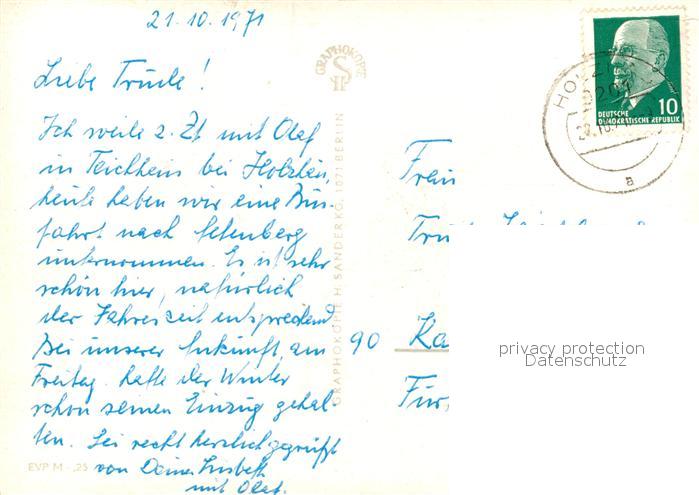 21.10.1971
Liebe Trude!
Ich weile z. Zt mit Olaf
in Teichheim bei Holzhau,
heute haben wir eine Bus-
fahrt nach Altenberg
unternommen. Es ist sehr
schön hier, natürlich
der Jahreszeit entsprechend
Bei unserer Ankunft, am
Freitag hatte der Winter
schon seinen Einzug gehal-
ten. Sei recht herzlich gegrüßt
von Deiner Lisbeth
mit Olaf.
EVP M -,25
GRAPHOKOPIE
GRAPHOKOPIE H. SANDER KG, 1071 BERLIN
DEUTSCHE
DEMOKRATISCHE REPUBLIK
10
a
Frau
90
privacy protection
Datenschutz